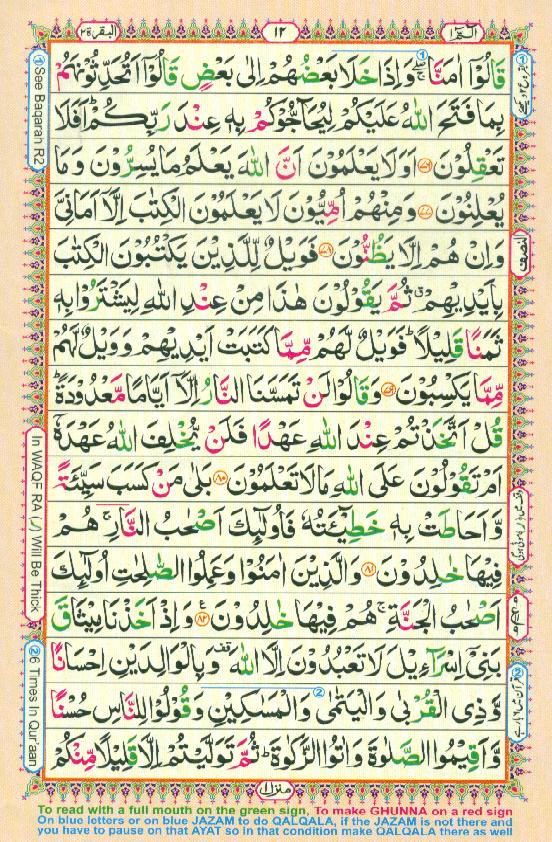 الٓمّٓ ١
١٢
البقرة ٢
قَالُوْٓا اٰمَنَّا ۖۚ وَاِذَا خَلَا بَعْضُهُمْ اِلٰى بَعْضٍ قَالُوْٓا اَتُحَدِّثُوْنَهُمْ
بِمَا فَتَحَ اللّٰهُ عَلَيْكُمْ لِيُحَآجُّوْكُمْ بِهٖ عِنْدَ رَبِّكُمْ ؕ اَفَلَا
تَعْقِلُوْنَ ﴿۷۶﴾ اَوَلَا يَعْلَمُوْنَ اَنَّ اللّٰهَ يَعْلَمُ مَا يُسِرُّوْنَ وَمَا
يُعْلِنُوْنَ ﴿۷۷﴾ وَمِنْهُمْ اُمِّيُّوْنَ لَا يَعْلَمُوْنَ الْكِتٰبَ اِلَّاۤ اَمَانِىَّ
وَاِنْ هُمْ اِلَّا يَظُنُّوْنَ ﴿۷۸﴾ فَوَيْلٌ لِّلَّذِيْنَ يَكْتُبُوْنَ الْكِتٰبَ
بِاَيْدِيْهِمْ ۗ ثُمَّ يَقُوْلُوْنَ هٰذَا مِنْ عِنْدِ اللّٰهِ لِيَشْتَرُوْا بِهٖ
ثَمَنًا قَلِيْلًا ؕ فَوَيْلٌ لَّهُمْ مِّمَّا كَتَبَتْ اَيْدِيْهِمْ وَوَيْلٌ لَّهُمْ
مِّمَّا يَكْسِبُوْنَ ﴿۷۹﴾ وَقَالُوْا لَنْ تَمَسَّنَا النَّارُ اِلَّاۤ اَيَّامًا مَّعْدُوْدَةً ؕ
قُلْ اَتَّخَذْتُمْ عِنْدَ اللّٰهِ عَهْدًا فَلَنْ يُّخْلِفَ اللّٰهُ عَهْدَهٗۤ
اَمْ تَقُوْلُوْنَ عَلَى اللّٰهِ مَا لَا تَعْلَمُوْنَ ﴿۸۰﴾ بَلٰى مَنْ كَسَبَ سَيِّئَةً
وَّاَحَاطَتْ بِهٖ خَطِيْٓئَتُهٗ فَاُولٰٓئِكَ اَصْحٰبُ النَّارِ ۚ هُمْ
فِيْهَا خٰلِدُوْنَ ﴿۸۱﴾ وَالَّذِيْنَ اٰمَنُوْا وَعَمِلُوا الصّٰلِحٰتِ اُولٰٓئِكَ
اَصْحٰبُ الْجَنَّةِ ۚ هُمْ فِيْهَا خٰلِدُوْنَ ﴿۸۲﴾ وَاِذْ اَخَذْنَا مِيْثَاقَ
بَنِىْٓ اِسْرَآءِيْلَ لَا تَعْبُدُوْنَ اِلَّا اللّٰهَ ۫ وَبِالْوَالِدَيْنِ اِحْسَانًا
وَّذِى الْقُرْبٰى وَالْيَتٰمٰى وَالْمَسٰكِيْنِ وَقُوْلُوْا لِلنَّاسِ حُسْنًا
وَّاَقِيْمُوا الصَّلٰوةَ وَاٰتُوا الزَّكٰوةَ ؕ ثُمَّ تَوَلَّيْتُمْ اِلَّا قَلِيْلًا مِّنْكُمْ
منزل ١
النصف
① See Baqarah R2
In WAQF RA (ر) Will Be Thick
② 6 Times In Qur'aan
To read with a full mouth on the green sign, To make GHUNNA on a red sign
On blue letters or on blue JAZAM to do QALQALA, if the JAZAM is not there and
you have to pause on that AYAT so in that condition make QALQALA there as well